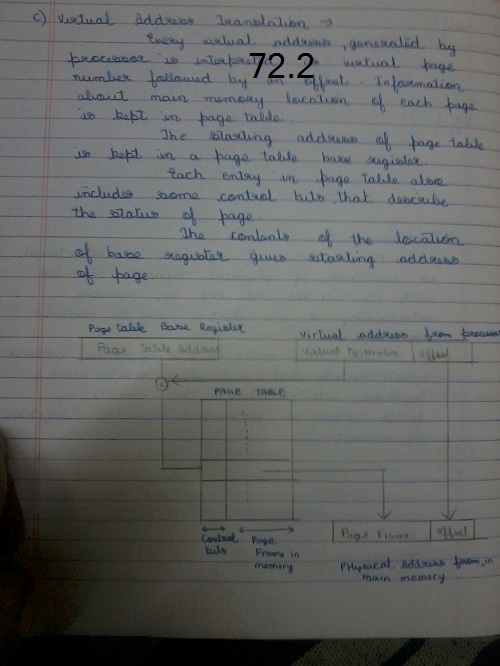 c) Virtual Address Translation →
Every virtual address, generated by
processor is virtual page
72.2
number followed by an offset. Information
about main memory location of each page
is kept in page table.
The starting address of page table
is kept in a page table base register.
Each entry in page table also
includes some control bits that describe
the status of page.
The contents of the location
of base register gives starting address
of page
Page Table Base Register
Virtual address from processor
Page Table Address
Virtual Pg Number
offset
PAGE TABLE
Control
bits
Page
Frame in
memory
Page Frame
offset
Physical Address from, in
main memory